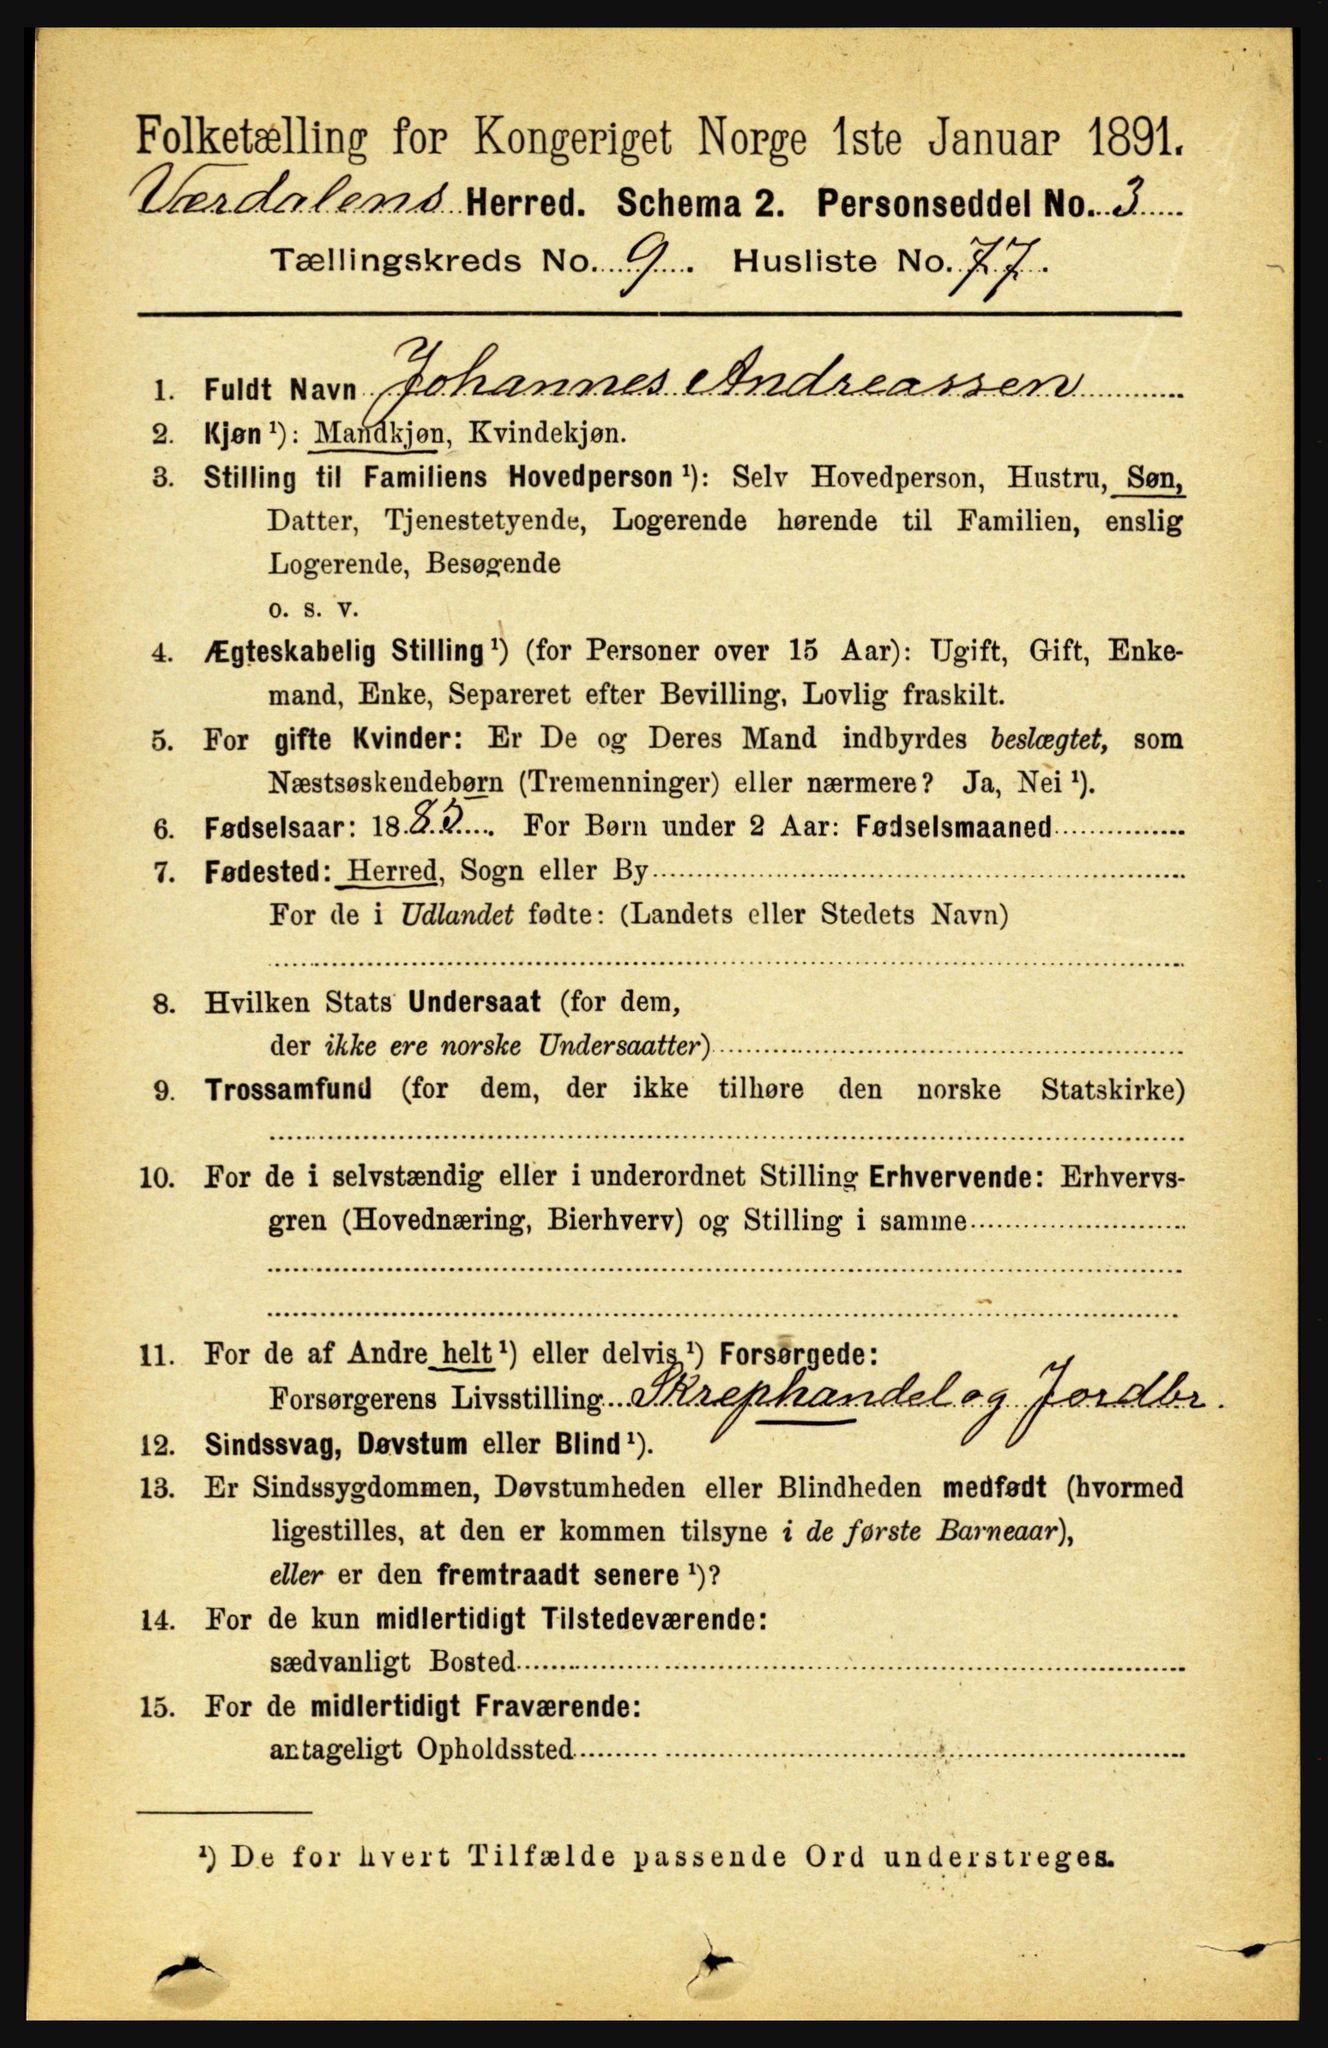 Folketælling for Kongeriget Norge 1ste Januar 1891.
Værdalens Herred. Schema 2. Personseddel No. 3
Tællingskreds No. 9. Husliste No. 77.
1. Fuldt Navn Johannes Andreassen
2. Kjøn ¹): Mandkjøn, Kvindekjøn.
3. Stilling til Familiens Hovedperson ¹): Selv Hovedperson, Hustru, Søn,
Datter, Tjenestetyende, Logerende hørende til Familien, enslig
Logerende, Besøgende
o. s. v.
4. Ægteskabelig Stilling ¹) (for Personer over 15 Aar): Ugift, Gift, Enke-
mand, Enke, Separeret efter Bevilling, Lovlig fraskilt.
5. For gifte Kvinder: Er De og Deres Mand indbyrdes beslægtet, som
Næstsøskendebørn (Tremenninger) eller nærmere? Ja, Nei ¹).
6. Fødselsaar: 1885. For Børn under 2 Aar: Fødselsmaaned
7. Fødested: Herred, Sogn eller By
For de i Udlandet fødte: (Landets eller Stedets Navn)
8. Hvilken Stats Undersaat (for dem,
der ikke ere norske Undersaatter)
9. Trossamfund (for dem, der ikke tilhøre den norske Statskirke)
10. For de i selvstændig eller i underordnet Stilling Erhvervende: Erhvervs-
gren (Hovednæring, Bierhverv) og Stilling i samme
11. For de af Andre helt ¹) eller delvis ¹) Forsørgede:
Forsørgerens Livsstilling Skrephandel og Jordbr.
12. Sindssvag, Døvstum eller Blind ¹).
13. Er Sindssygdommen, Døvstumheden eller Blindheden medfødt (hvormed
ligestilles, at den er kommen tilsyne i de første Barneaar),
eller er den fremtraadt senere ¹)?
14. For de kun midlertidigt Tilstedeværende:
sædvanligt Bosted
15. For de midlertidigt Fraværende:
antageligt Opholdssted
¹) De for hvert Tilfælde passende Ord understreges.